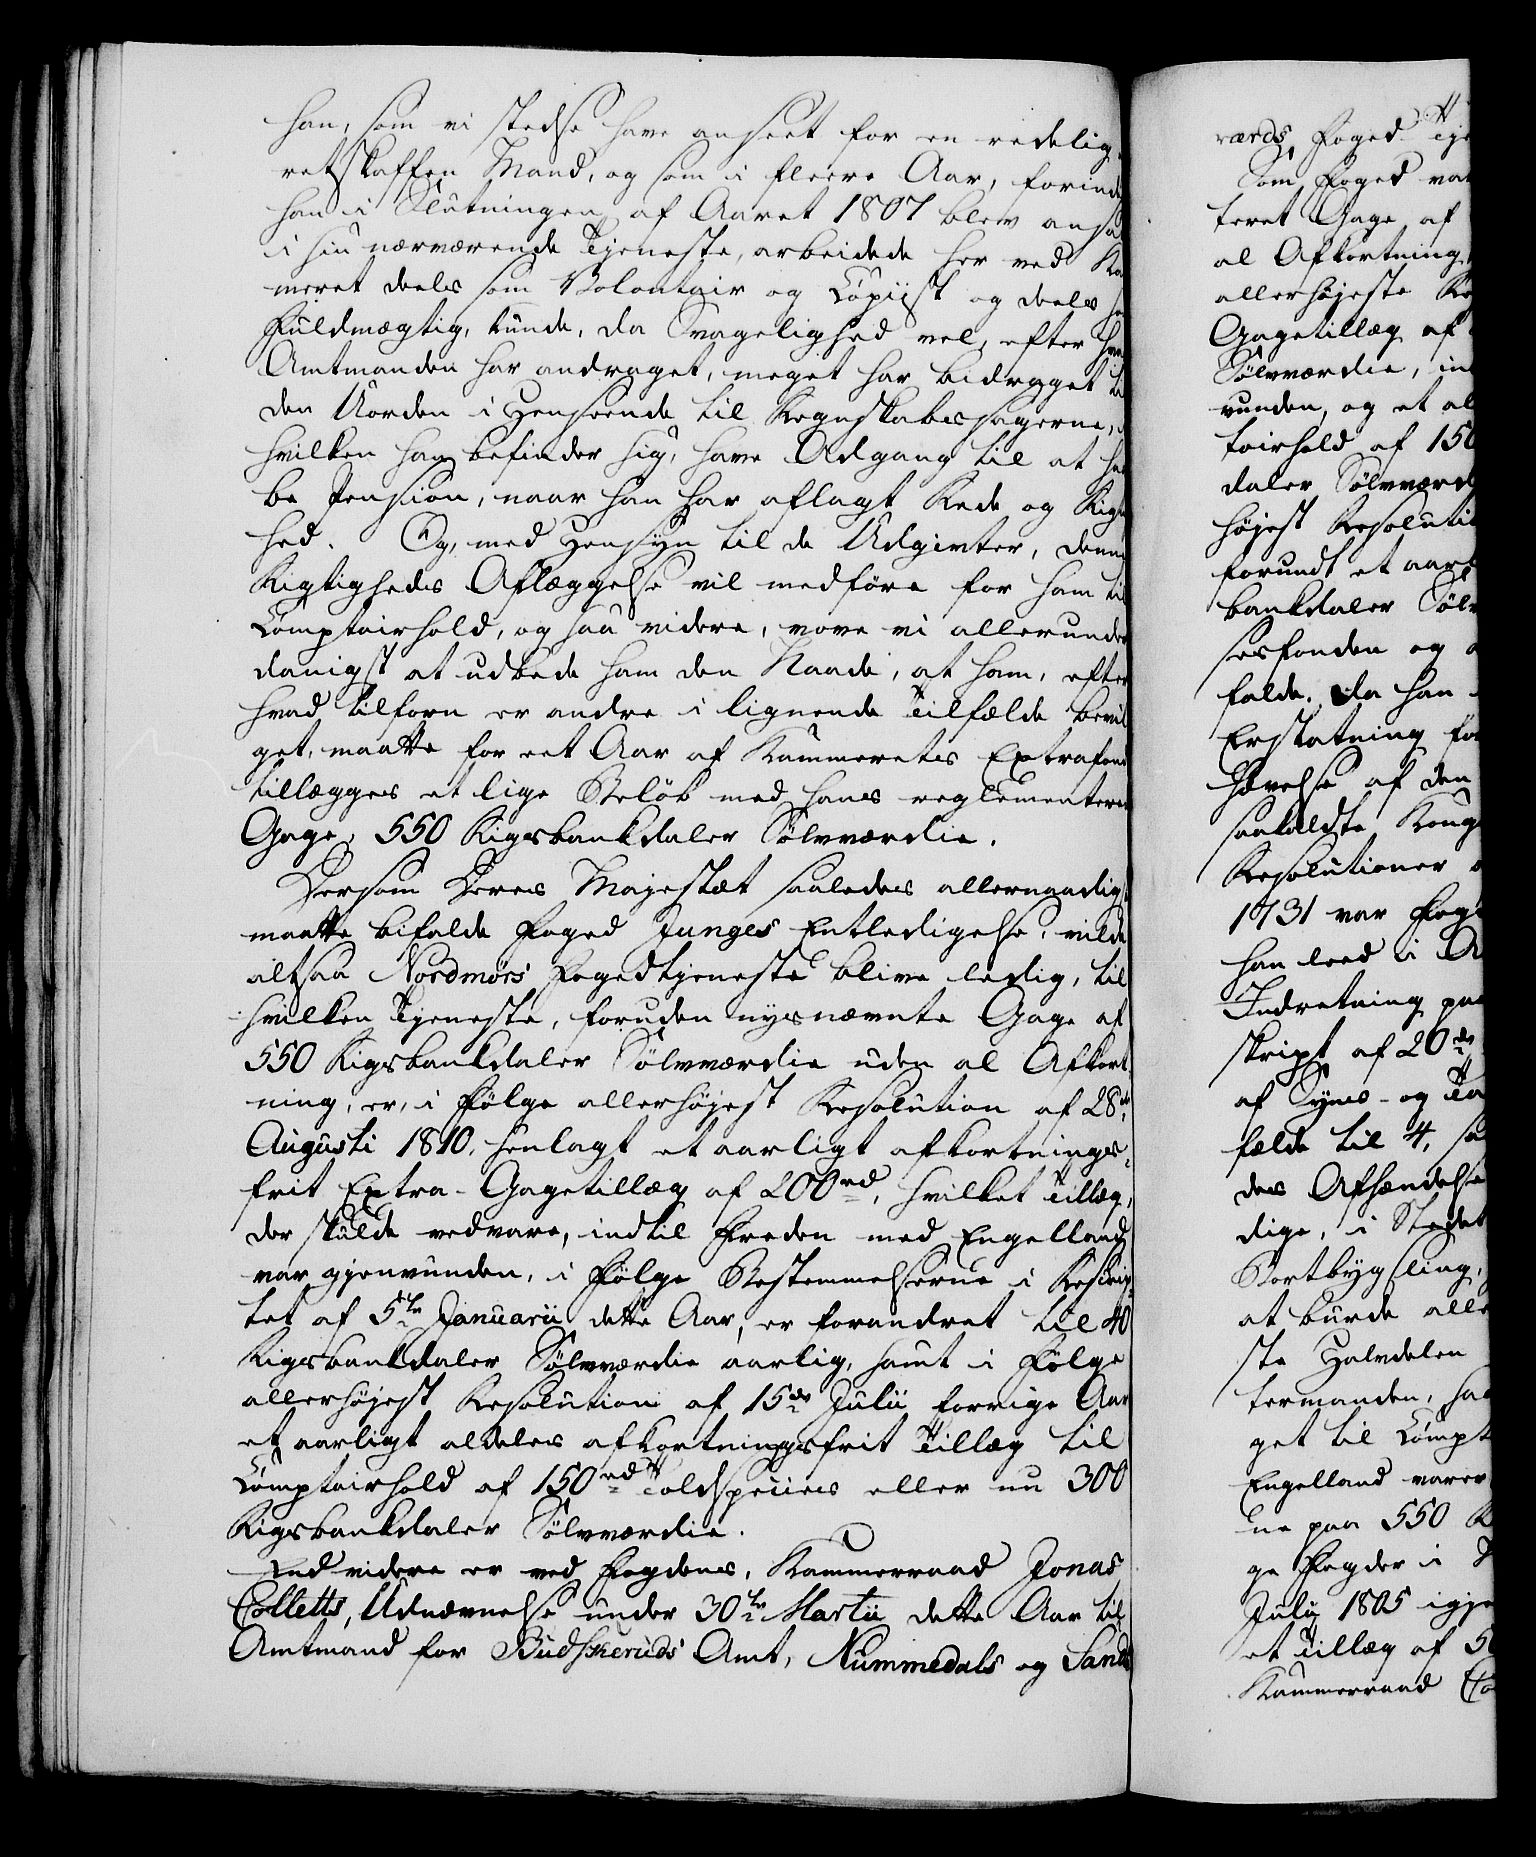 han, som vi stedse have anseet for en redelig,
retskaffen Mand, og som i fleere Aar, forinden
han i Slutningen af Aaret 1807 blev ansat
i sin nærværende Tjeneste, arbeidede her ved Kam
meret deels som Volontair og Copiist og deels som
Fuldmægtig, kunde, da Svagelighed vel, efter hvad
Amtmanden har andraget, meget har bidraget til
den Uorden i Henseende til Regnskabssagerne, i
hvilken han befinder sig, have Adgang til at haa
be Pension, naar han har aflagt Rede og Rigtig
hed. Og, med Hensyn til de Udgivter, denne
Rigtigheds Aflæggelse vil medföre for ham til
Comptoirhold, og saa videre, vove vi allerunder
danigst at udbede ham den Naade, at ham, efter
hvad tilforn er andre i lignende Tilfælde bevil
get, maatte for eet Aar af Kammerets Extrafond
tillægges et lige Beløb med hans reglementerede
Gage, 550 Rigsbankdaler Sölvværdie.
Dersom Deres Majestæt saaledes allernaadigst
maatte bifalde Foged Junges Entledigelse, vilde
altsaa Nordmörs Fogedtjeneste blive ledig, til
hvilken Tjeneste, foruden nysnævnte Gage af
550 Rigsbankdaler Sölvværdie uden al Afkort
ning, er, i Fölge allerhöjest Resolution af 28de
Augusti 1810, henlagt et aarligt afkortnings-
frit Extra-Gagetillæg af 200 rd, hvilket Tillæg,
der skulde vedvare, indtil Freden med Engelland
var gjenvunden, i Fölge Bestemmelserne i Rescrip-
tet af 5te Januarii dette Aar, er forandret til 40
Rigsbankdaler Sölvværdie aarlig, samt i Fölge
allerhöjest Resolution af 15de Julii forrige Aar
et aarligt aldeles afkortningsfrit Tillæg til
Comptoirhold af 150 rd Toldspecies eller nu 300
Rigsbankdaler Sölvværdie.
End videre er ved Fogdens, Kammerraad Jonas
Colletts, Udnævnelse under 30te Martii dette Aar til
Amtmand for Budskeruds Amt, Nummedals og Sands
værds Foged
Som Foged
teret Gage af
al Afkortning
allerhöjeste
Gagetillæg af
Sölvværdie,
vunden, og et al
toirhold af 150
daler Sölvværd
höjest Resoluti
forundt et aar
bankdaler Söl
sesfonden og
falde. Da han
Erstatning for
hævelse af den
saakaldte Kong
Resolutioner
1731 var Fog
han leed i
Indretning paa
skript af 20de
af Synes- og
fælde til 4,
des Afhændelse
dige, i Stedet
Bortbygsling,
at burde alle
ste Halvdelen
termanden,
get til Compt
Engelland varer
ne paa 550
ge Fogder i
Julij 1805 igje
et Tillæg af 5
Kammerraad Co